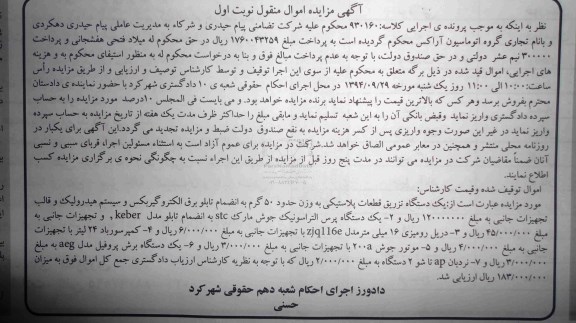 آگهی مزایده اموال منقول نوبت اول
نظر به اینکه به موجب پرونده ی اجرایی کلاسه: ۹۳۰۱۶۰ محکوم علیه شرکت تضامنی پیام حیدری و شرکاء به مدیریت عاملی پیام حیدری دهکردی
و بانام تجاری گروه اتوماسیون آراکس محکوم گردیده است به پرداخت مبلغ ۱۷۶۰۰۴۳۲۵۹ ریال در حق محکوم له میلاد فتحی هفشجانی و پرداخت
۳۰۰۰۰۰ نیم عشر دولتی و در حق صندوق دولت، با توجه به عدم پرداخت مبالغ فوق و بنا به درخواست محکوم له به منظور استیفای محکوم به و هزینه
های اجرایی، اموال قید شده در ذیل برگه متعلق به محکوم علیه از سوی این اجرا توقیف و توسط کارشناس توصیف و ارزیابی و از طریق مزایده رأس
ساعت ۱۰:۰۰ الی ۱۱:۰۰ روز یک شنبه مورخه ۱۳۹۴/۰۹/۲۹ در محل اجرای احکام حقوقی شعبه ی ۱۰ دادگستری شهرکرد با حضور نماینده ی دادستان
محترم بفروش برسد وهر کس که بالاترین قیمت را پیشنهاد نماید برنده مزایده خواهد بود. و می بایست فی المجلس ۱۰درصد مورد مزایده را به حساب
سپرده دادگستری واریز نماید وفیش بانکی آن را به این شعبه تسلیم نماید و مابقی مبلغ را حداکثر ظرف مدت یک هفته از تاریخ مزایده به حساب سپرده
واریز نماید در غیر این صورت وجوه واریزی پس از کسر هزینه مزایده به نفع صندوق دولت ضبط و مزایده تجدید می گردد.این آگهی برای یکبار در
روزنامه محلی منتشر و همچنین در معابر عمومی الصاق خواهد شد.شرکت در مزایده برای عموم آزاد است به استثناء مسئولین اجراء، قربای سببی و نسبی
آنان ضمناً متقاضیان شرکت در مزایده می توانند در مدت پنج روز قبل از مزایده از طریق این اجراء نسبت به چگونگی نحوه ی برگزاری مزایده کسب
اطلاع نمایند.
اموال توقیف شده وقیمت کارشناس:
مورد مزایده عبارت است از:یک دستگاه تزریق قطعات پلاستیکی به وزن حدود ۵۰ گرم به انضمام تابلو برق الکتروگیربکس و سیستم هیدرولیک و قالب
تجهیزات جانبی به مبلغ ۱۲۰۰۰۰۰۰۰ ریال و ۲- یک دستگاه پرس التراسونیک جوش مارک stc به انضمام تابلو مدل keber , و تجهیزات جانبی به
مبلغ ۴۵/۰۰۰/۰۰۰ ریال و ۳- دریل رومیزی ۱۶ میلی مترمدل zjq116e با تجهیزات جانبی به مبلغ ۶/۰۰۰/۰۰۰ ریال و ۴- کمپرسورباد ۲۴ لیتر با تجهیزات
جانبی به مبلغ ۴/۰۰۰/۰۰۰ ریال و ۵- موتور جوش ۲۰۰a با تجهیزات جانبی به مبلغ ۳/۰۰۰/۰۰۰ ریال و ۶- یک دستگاه برش پروفیل مدل aeg به مبلغ
۳/۰۰۰/۰۰۰ ریال و ۷- نردبان ap تا شو ۲ دستگاه به مبلغ ۲/۰۰۰/۰۰۰ ریال که با توجه به نظریه کارشناس ارزیاب دادگستری جمع کل اموال فوق به میزان
۱۸۳/۰۰۰/۰۰۰ ریال ارزیابی شد.
دادورز اجرای احکام شعبه دهم حقوقی شهرکرد
حسنی